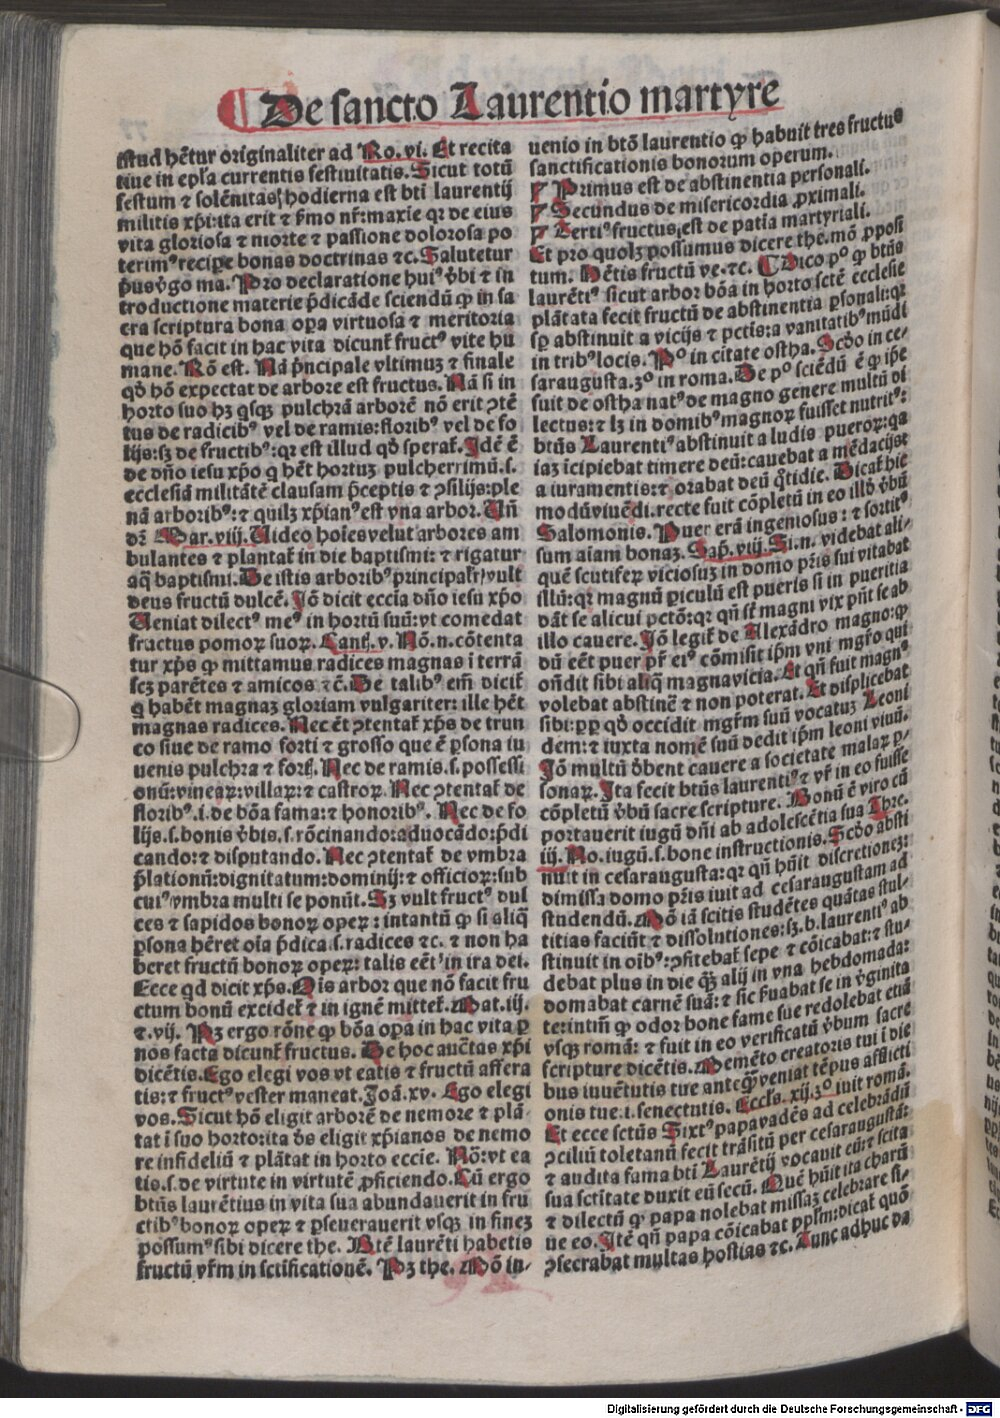 ¶ De sancto Laurentio martyre
istud hētur originaliter ad Ro. vi. Et recita
tiue in epl̄a currentis festiuitatis. Sicut totū
festum ⁊ solēnitas hodierna est bt̄i laurentij
militis xp̄i: ita erit ⁊ p̄mo nr̄: maxīe qr de eius
vita gloriosa ⁊ morte ⁊ passione dolorosa po
terimꝰ recipe bonas doctrinas ⁊c. Salutetur
Pro declaratione huiꝰ v̄bi ⁊ in
troductione materie p̄dicāde sciendū ꝙ in sa
cra scriptura bona opa virtuosa ⁊ meritoria
que hō facit in hac vita dicunt̄ fructꝰ vite hu
mane. Rō est. Nā p̄ncipale vltimuꝫ ⁊ finale
qd̄ hō expectat de arbore est fructus. Nā si in
horto suo hꝫ qsqꝫ pulchrā arborē nō erit ꝯtē
tus de radicibꝰ vel de ramis: floribꝰ vel de fo
lijs: sꝫ de fructibꝰ: qr est illud qd̄ sperat̄. Idē ē
de dn̄o iesu xp̄o q hēt hortuꝫ pulcherrimū. s.
ecclesiā militātē clausam p̄ceptis ⁊ ꝯsilijs: ple
nā arboribꝰ: ⁊ quilꝫ xp̄ianꝰ est vna arbor. Un̄
dꝫ Mar. viij. Uideo hoīes velut arbores am
bulantes ⁊ plantat̄ in die baptismi: ⁊ rigatur
aq̄ baptismi. De istis arboribꝰ principalr̄ vult
deus fructū dulcē. Iō dicit eccīa dn̄o iesu xp̄o
Ueniat dilectꝰ meꝰ in hortū suū: vt comedat
fructus pomoꝝ suoꝝ. Cant̄. v. Nō. n. cōtenta
tur xp̄s ꝙ mittamus radices magnas ī terrā
scꝫ parētes ⁊ amicos ⁊c̄. De talibꝰ em̄ dicit̄
q habēt magnaꝫ gloriam vulgariter: ille hēt
magnas radices. Nec ēt ꝯtentat̄ xp̄s de trun
co siue de ramo forti ⁊ grosso que ē ꝑsona iu
uenis pulchra ⁊ fort̄. Nec de ramis. s. possessi
onū: vineaꝝ: villaꝝ: ⁊ castroꝝ. Nec ꝯtentat̄ de
floribꝰ. i. de bōa fama: ⁊ honoribꝰ. Nec de fo
lijs. s. bonis v̄bis. s. rōcinando: aduocādo: p̄di
cando: ⁊ disputando. Nec ꝯtentat̄ de vmbra
p̄lationū: dignitatum: dominij: ⁊ officioꝝ: sub
cuiꝰ vmbra multi se ponūt. Sꝫ vult fructꝰ dul
ces ⁊ sapidos bonoꝝ opeꝝ: intantū ꝙ si aliq̄
ꝑsona hēret oīa p̄dica. s. radices ⁊c. ⁊ non ha
beret fructū bonoꝝ opeꝝ: talis eēt in ira dei.
Ecce qd dicit xp̄s. Oīs arbor que nō facit fru
ctum bonū excidet̄ ⁊ in ignē mittet̄. Mat. iij.
⁊. vij. Pꝫ ergo rōne ꝙ bōa opa in hac vita ꝑ
nos facta dicunt̄ fructus. De hoc auc̄tas xp̄i
dicētis. Ego elegi vos vt eatis ⁊ fructū affera
tis: ⁊ fructꝰ vester maneat. Joā. xv. Ego elegi
vos. Sicut hō eligit arborē de nemore ⁊ plā
tat ī suo horto: ita d̄s eligit xp̄ianos de nemo
re infideliū ⁊ plātat in horto eccīe. Rō: vt ea
tis. s. de virtute in virtutē ꝓficiendo. Cū ergo
bt̄us laurētius in vita sua abundauerit in fru
ctibꝰ bonoꝝ opeꝝ ⁊ ꝑseuerauerit vsqꝫ in fineꝫ
possumꝰ sibi dicere the. Btē laurēti habetis
fructū vr̄m in sctificationē. Pꝫ the. Mō in-
uenio in btō laurentio ꝙ habuit tres fructus
sanctificationis bonorum operum.
Primus est de abstinentia personali.
Secundus de misericordia ꝓximali.
Tertiꝰ fructus est de patīa martyriali.
Et pro quolꝫ possumus dicere the. mō ꝓposi
tum. Hētis fructū ve. ⁊c. ¶ Dico pº ꝙ bt̄us
laurētiꝰ sicut arbor bōa in horto sctē ecclesie
plātata fecit fructū de abstinentia ꝑsonali: qr
sꝑ abstinuit a vicijs ⁊ pctīs: a vanitatibꝰ mūdi
in tribꝰ locis. Pº in citate ostha. Scd̄o in ce-
saraugusta. 3º in roma. De pº sciēdū ē ꝙ ip̄e
fuit de ostha natꝰ de magno genere multū di
lectus: ⁊ lꝫ in domibꝰ magnoꝝ fuisset nutritꝰ:
bt̄us Laurentiꝰ abstinuit a ludis pueroꝝ: qa
iaꝫ īcipiebat timere deū: cauebat a mēdacijs ⁊
a iuramentis: ⁊ orabat deū q̄tidie. Dicat̄ hic
modū viuēdi. recte fuit cōpletū in eo illd̄ v̄bū
Salomonis. Puer erā ingeniosus: ⁊ sortitꝰ
sum aīam bonaꝫ. Sap̄. viij. Si. n. videbat ali-
quē scutifeꝝ viciosuꝫ in domo pr̄is sui vitabat
illū: qr magnū piculū est pueris si in pueritia
dāt se alicui pctō: qr qn̄ st̄ magni vix pn̄t se ab
illo cauere. Iō legit̄ de Alexādro magno: ꝙ
dū eēt puer pr̄ eiꝰ cōmisit ip̄m vni mgr̄o qui
on̄dit sibi aliq̄ magna vicia. Et qn̄ fuit magnꝰ
volebat abstinē ⁊ non poterat. Et displicebat
sibi: ꝓp qd̄ occidit mgr̄m suū vocatuꝫ Leoni
dem: ⁊ iuxta nomē suū dedit ip̄m leoni viuū.
Iō multū d̄bent cauere a societate malaꝝ ꝑ-
sonaꝝ. Ita fecit bt̄us laurentiꝰ ⁊ vr̄ in eo fuisse
cōpletū v̄bū sacre scripture. Bonū ē viro cū
portauerit iugū dn̄i ab adolescētia sua Thre.
iij. No. iugū. s. bone instructionis. Scd̄o absti
nuit in cesaraugusta: qr qn̄ hūit discretioneꝫ:
dimissa domo pr̄is iuit ad cesaraugustam ad
studendū. Mō iā scitis studētes quātas stul-
titias faciūt ⁊ dissolutiones: sꝫ. b. laurentiꝰ ab
stinuit in oībꝰ: ꝯfitebat̄ sepe ⁊ cōicabat: ⁊ stu-
debat plus in die q̄ꝫ alij in vna hebdomada:
domabat carnē suā: ⁊ sic p̄uabat se in v̄ginita
te: intm̄ ꝙ odor bone fame sue redolebat etiā
vsqꝫ romā: ⁊ fuit in eo verificatū v̄bum sacre
scripture dicētis. Memēto creatoris tui ī die
bus iuuētutis tue anteq̄ꝫ veniat tēpus afflicti
onis tue. i. senectutis. Eccl̄s. xij. 3º iuit romā.
Et ecce sctūs Sixtꝰ papa vadēs ad celebrādū
ꝯciliū toletanū fecit trāsitū per cesaraugustā:
⁊ audita fama bt̄i Laurētij vocauit eū: ⁊ scita
sua sctītate duxit eū secū. Quē hūit ita charū
⁊ dilectū ꝙ papa nolebat missaꝫ celebrare si-
ne eo. Itē qn̄ papa cōicabat pplm̄: dicat̄ quō
ꝯsecrabat multas hostias ⁊c. Tunc adhuc da
Digitalisierung gefördert durch die Deutsche Forschungsgemeinschaft - DFG